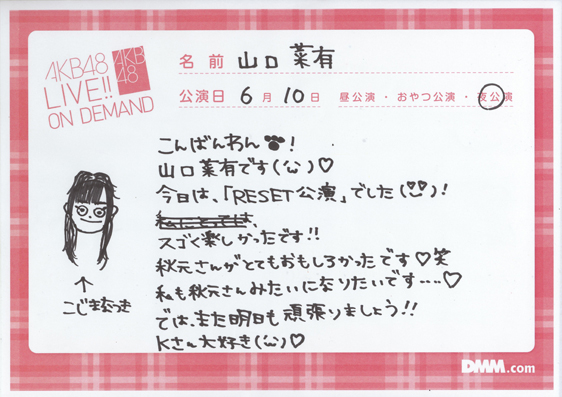 AKB48
LIVE!!
ON DEMAND
AKB
48
名前 山口 菜有
公演日 6月10日 昼公演・おやつ公演・夜公演
こんばんわん!
山口菜有です(ω)♡
今日は、「RESET公演」でした(ω)!
私にとっては、
スゴく楽しかったです!!
秋元さんがとてもおもしろかったです♡笑
私も秋元さんみたいになりたいです....♡
では、また明日も頑張りましょう!!
Kさん大好き(ω)♡
↑
こじまなつき
DMM.com